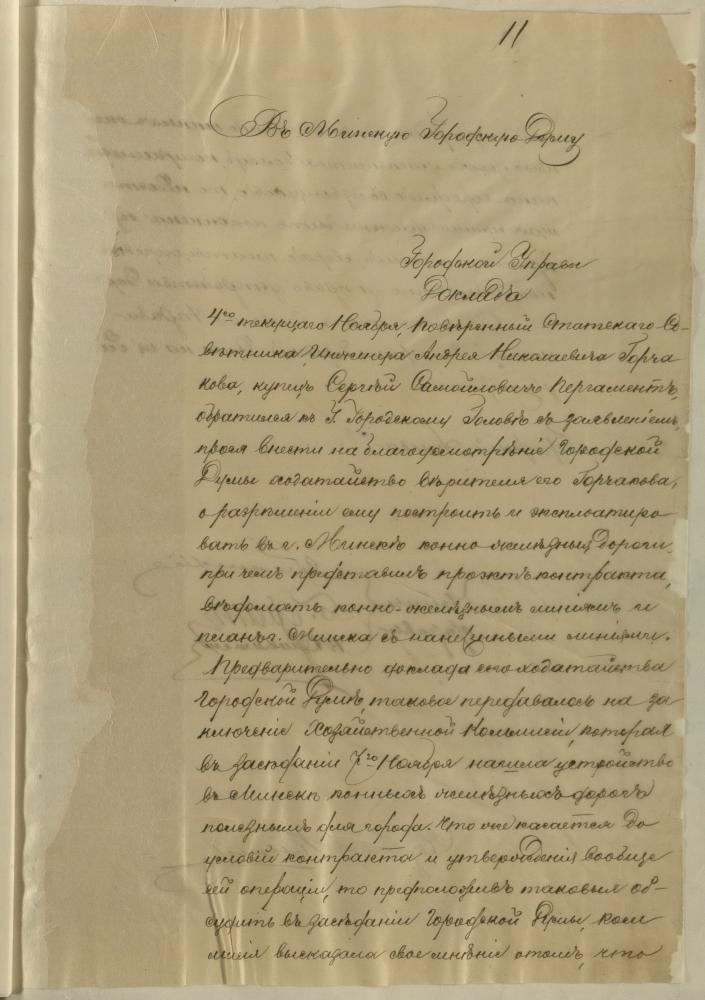 11
Въ Минскую Городскую Думу
Городской Управы
Докладъ
4го текущаго Ноября, Повѣренный Статскаго Со-
вѣтника, Инженера Андрея Николаевича Горча
кова, купецъ Сергѣй Самойловичъ Пергаментъ,
обратился къ Г. Городскому Головѣ съ заявленіемъ,
прося внести на благоусмотрѣніе Городской
Думы ходатайство вѣрителя его Горчакова,
о разрѣшеніи ему построить и эксплоатиро
вать въ г. Минскѣ конно-желѣзныя дороги,
при чемъ представилъ проэктъ контракта,
вѣдомость конно-желѣзнымъ линіямъ и
планъ г. Минска съ нанесенными линіями.
Предварительно доклада его ходатайства
Городской Думѣ, таковое передавалось на за
ключеніе Хозяйственной Коммисіи, которая
въ засѣданіи 7го Ноября нашла устройство
въ Минскѣ конныхъ желѣзныхъ дорогъ
полезнымъ для города. Что же касается до
условій контракта и утвержденія вообще
сей операціи, то предположивъ таковыя об-
судить въ засѣданіи Городской Думы, ком
мисія высказала свое мнѣніе о томъ, что